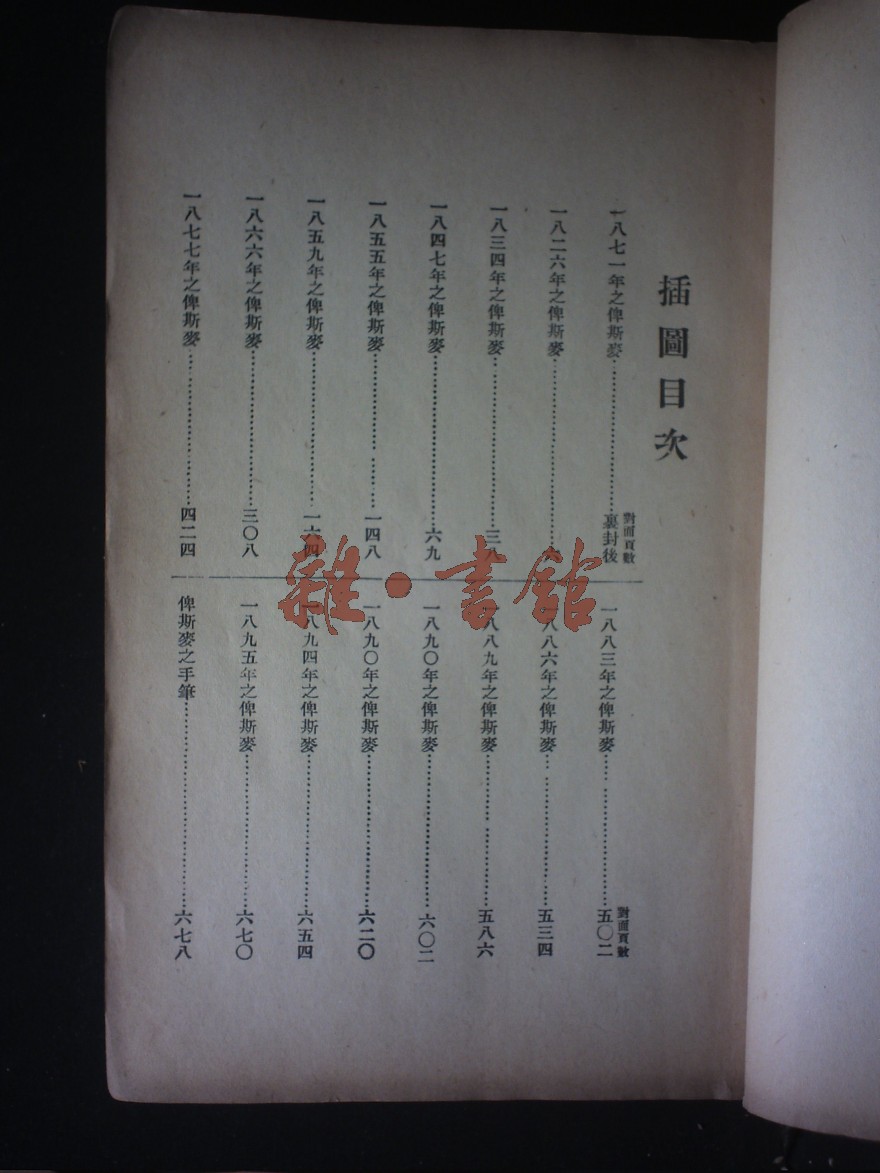 插圖目次
對面頁數
一八七一年之俾斯麥……裏封後
一八二六年之俾斯麥……六
一八三四年之俾斯麥……三八
一八四七年之俾斯麥……六九
一八五五年之俾斯麥……一四八
一八五九年之俾斯麥……一六四
一八六六年之俾斯麥……三〇八
一八七七年之俾斯麥……四二四
對面頁數
一八八三年之俾斯麥……五〇二
一八八六年之俾斯麥……五三四
一八八九年之俾斯麥……五八六
一八九〇年之俾斯麥……六〇二
一八九〇年之俾斯麥……六二〇
一八九四年之俾斯麥……六五四
一八九五年之俾斯麥……六七〇
俾斯麥之手筆……六七八
雜·書館